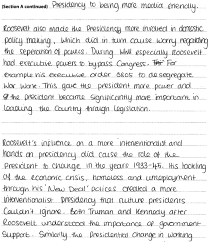 (Section A continued) Presidency to being more media friendly.
Roosevelt also made the Presidency more involved in domestic
policy making. Which did in turn cause worry regarding
the seperation of powers. During WWII especially Roosevelt
had executive powers to bypass Congress. For
example his executive order 8802 to desegregate
War work. This gave the president more power and
the president became significantly more important in
leading the country through legislation.
Roosevelt's influence on a more interventionist and
hands on presidency did cause the role of the
President to change in the years 1933-45. His tackling
of the economic crisis, homeless and unemployment
through his 'New Deal' policies created a more
interventionist presidency that future presidents
couldn't ignore. Both Truman and Kennedy after
Roosevelt understood the importance of government
support. Similarly the Presidents changed in working